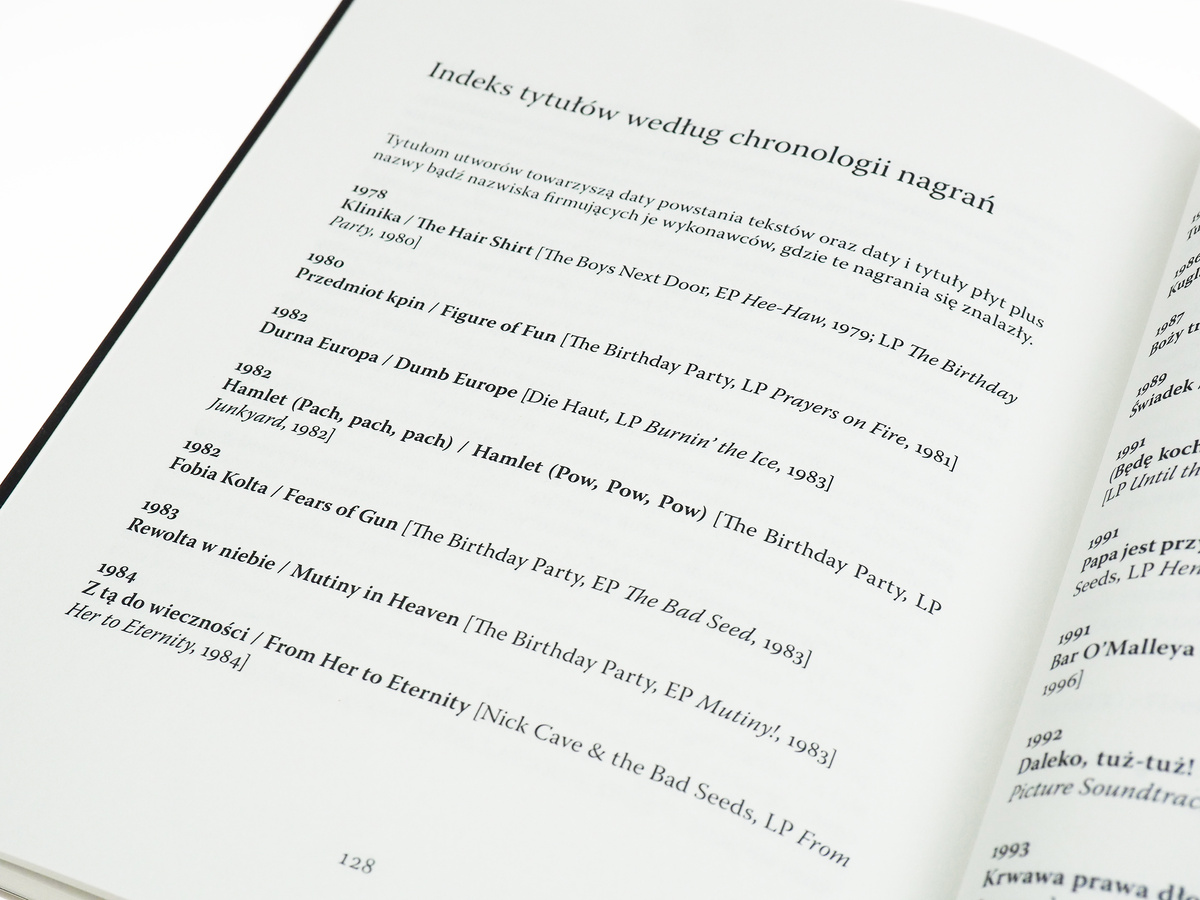 Indeks tytułów według chronologii nagrań
Tytułom utworów towarzyszą daty powstania tekstów oraz daty i tytuły płyt plus
nazwy bądź nazwiska firmujących je wykonawców, gdzie te nagrania się znalazły.
1978
Klinika / The Hair Shirt [The Boys Next Door, EP Hee-Haw, 1979; LP The Birthday
Party, 1980]
1980
Przedmiot kpin / Figure of Fun [The Birthday Party, LP Prayers on Fire, 1981]
1982
Durna Europa / Dumb Europe [Die Haut, LP Burnin' the Ice, 1983]
1982
Hamlet (Pach, pach, pach) / Hamlet (Pow, Pow, Pow) [The Birthday Party, LP
Junkyard, 1982]
1982
Fobia Kolta / Fears of Gun [The Birthday Party, EP The Bad Seed, 1983]
1983
Rewolta w niebie / Mutiny in Heaven [The Birthday Party, EP Mutiny!, 1983]
1984
Z tą do wieczności / From Her to Eternity [Nick Cave & the Bad Seeds, LP From
Her to Eternity, 1984]
128
1986
1987
Boży
1989
Świadek
1991
(Będę
[LP Until
1991
Papa jest
Seeds, LP
1991
Bar O'Malleya
1996]
1992
Daleko, tuż-tuż!
Picture
1993
Krwawa prawa